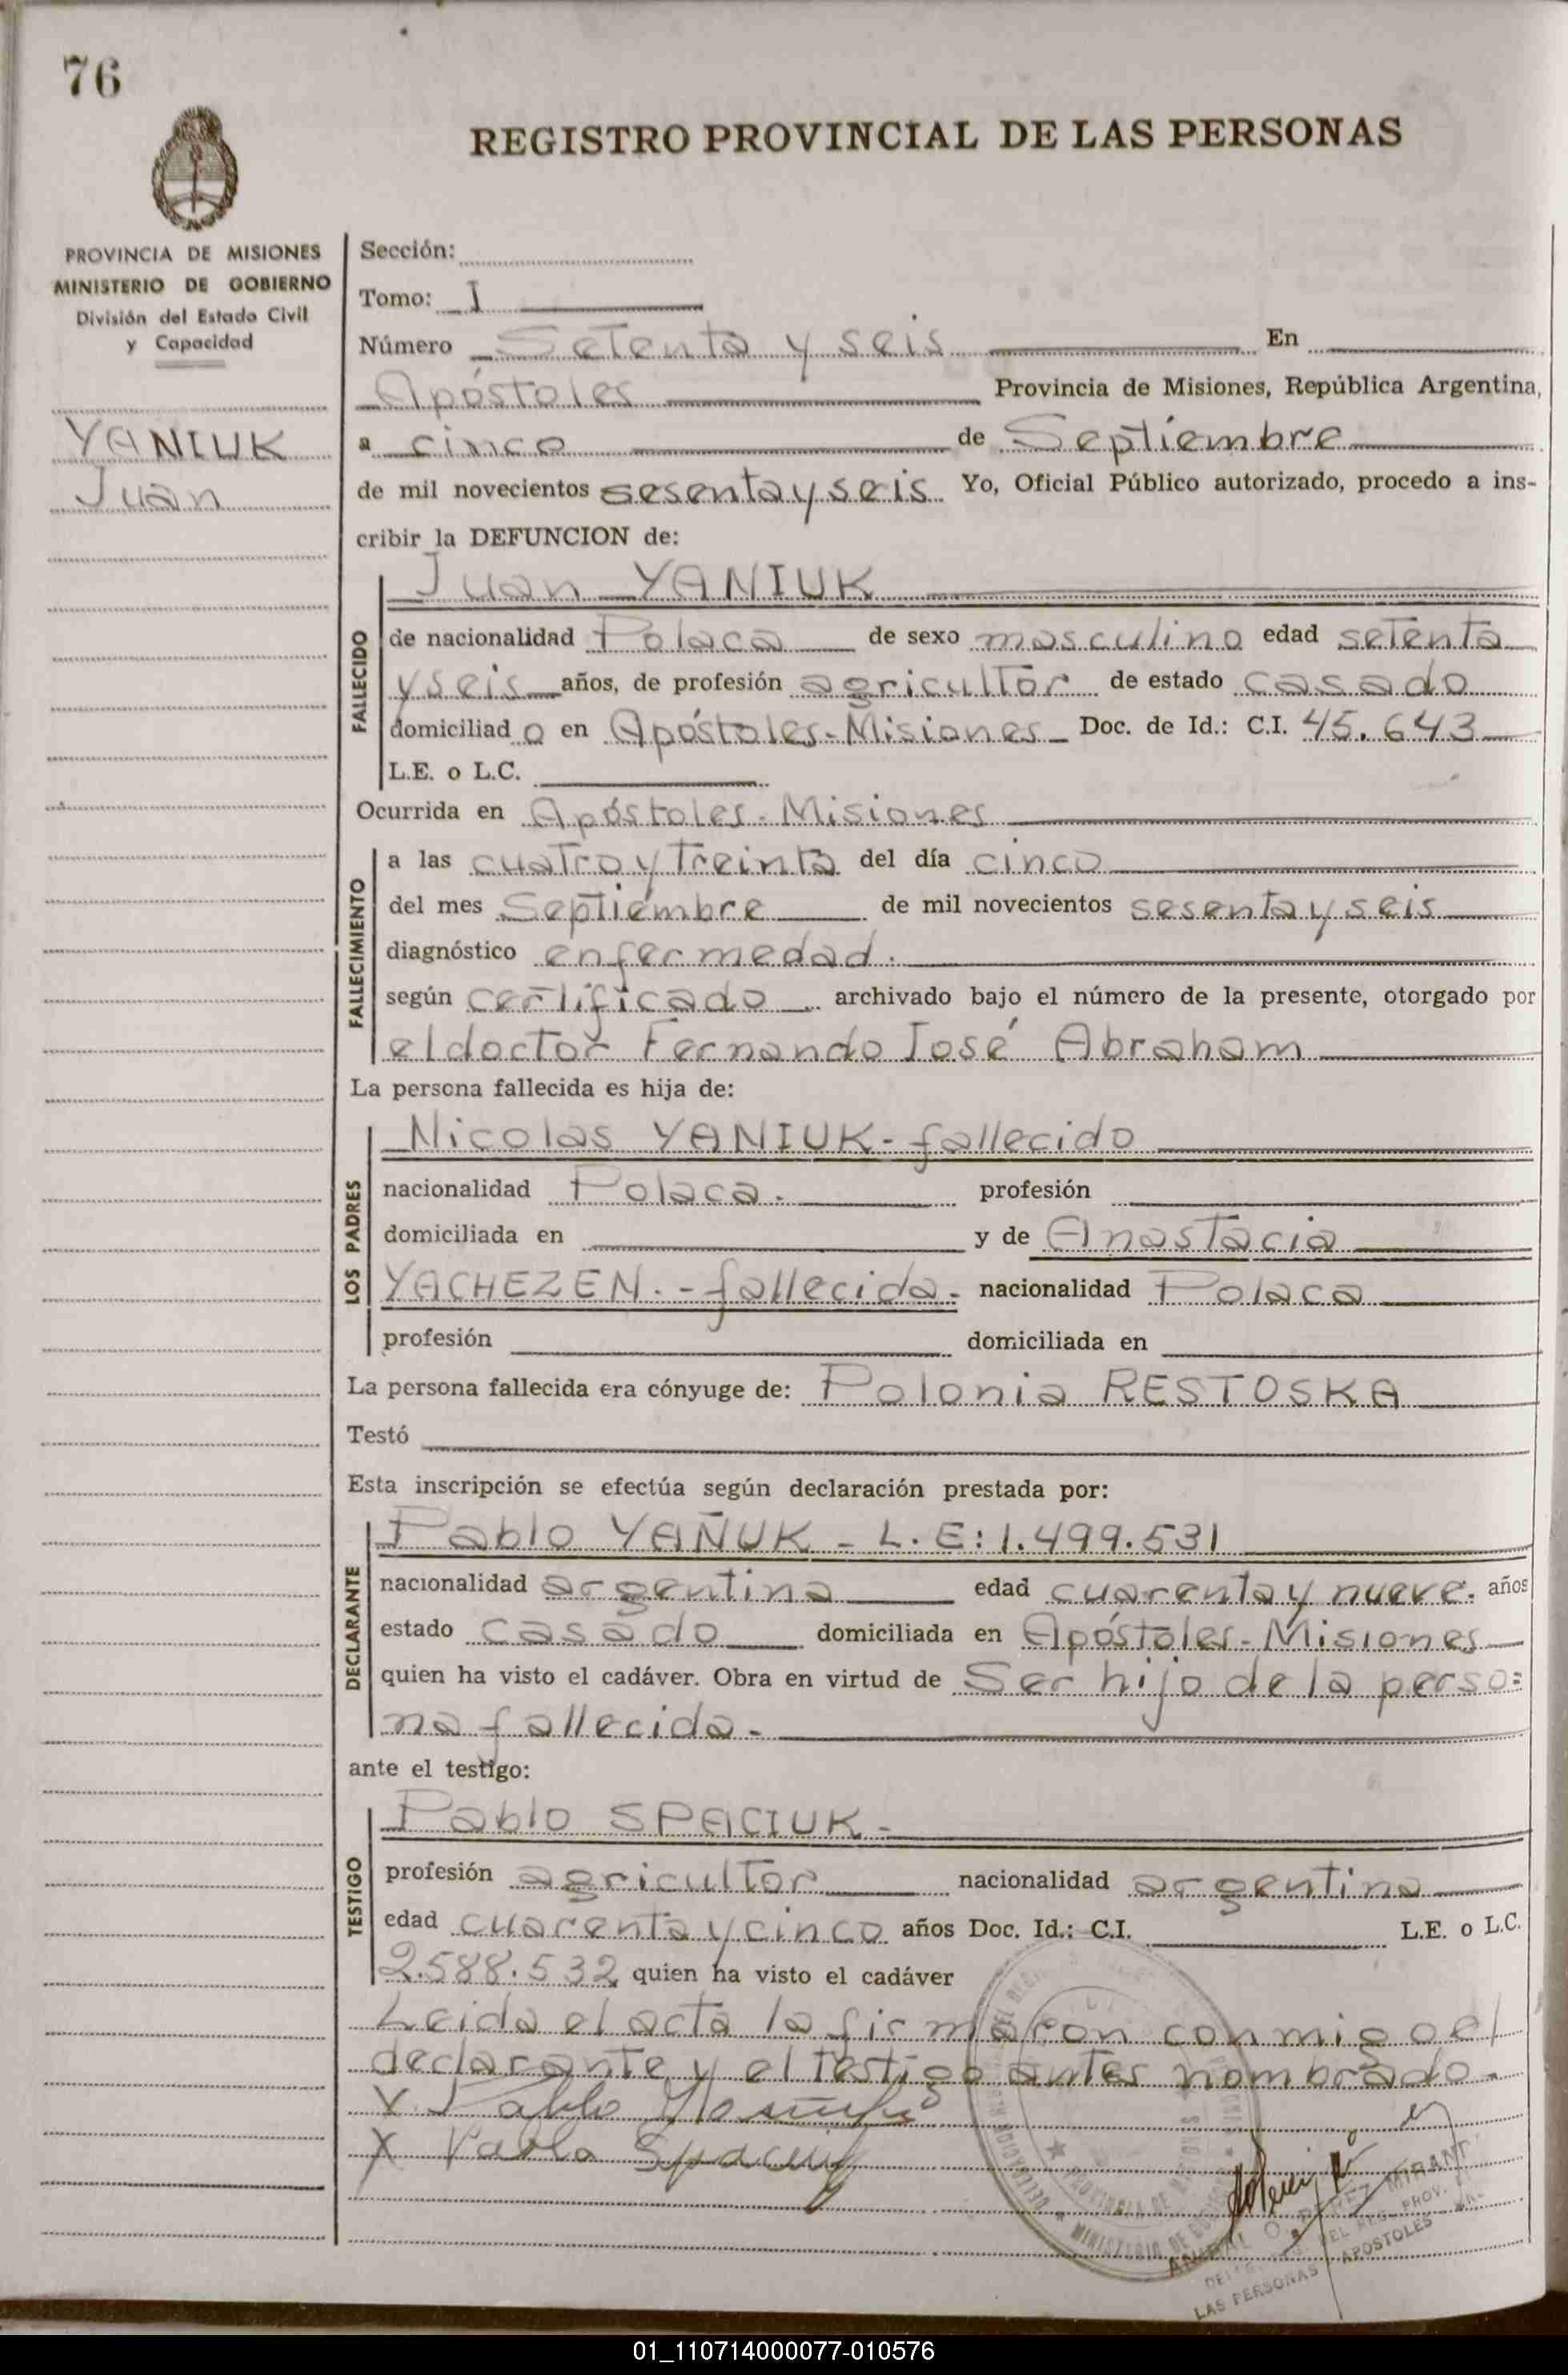 76
REGISTRO PROVINCIAL DE LAS PERSONAS
PROVINCIA DE MISIONES
MINISTERIO DE GOBIERNO
División del Estado Civil
y Capacidad
YANIUK
Juan
Sección:
Tomo: I
Número Setenta y seis En
Apóstoles Provincia de Misiones, República Argentina,
a cinco de Septiembre
de mil novecientos sesenta y seis Yo, Oficial Público autorizado, procedo a ins-
cribir la DEFUNCION de:
FALLECIDO
Juan YANIUK
de nacionalidad Polaca de sexo masculino edad setenta
y seis años, de profesión agricultor de estado casado
domiciliad o en Apóstoles-Misiones Doc. de Id.: C.I. 45.643
L.E. o L.C.
Ocurrida en Apóstoles-Misiones
FALLECIMIENTO
a las cuatro y treinta del día cinco
del mes Septiembre de mil novecientos sesenta y seis
diagnóstico enfermedad.
según certificado archivado bajo el número de la presente, otorgado por
el doctor Fernando José Abraham
La persona fallecida es hija de:
LOS PADRES
Nicolas YANIUK-fallecido
nacionalidad Polaca. profesión
domiciliada en y de Anastacia
YACHEZEN.-fallecida- nacionalidad Polaca
profesión domiciliada en
La persona fallecida era cónyuge de: Polonia RESTOSKA
Testó
Esta inscripción se efectúa según declaración prestada por:
DECLARANTE
Pablo YAÑUK - L.E: 1.499.531
nacionalidad argentina edad cuarenta y nueve. años
estado casado domiciliada en Apóstoles-Misiones
quien ha visto el cadáver. Obra en virtud de Ser hijo de la perso=
na fallecida-
ante el testigo:
TESTIGO
Pablo SPACIUK-
profesión agricultor nacionalidad argentina
edad cuarenta y cinco años Doc. Id.: C.I. L.E. o L.C.
2.588.532 quien ha visto el cadáver
Leida el acta la firmaron conmigo el
declarante y el testigo antes nombrado-
X Pablo
X Pablo
PROVINCIA DE MISIONES
MINISTERIO DE GOBIERNO
LAS PERSONAS APOSTOLES
01_110714000077-010576